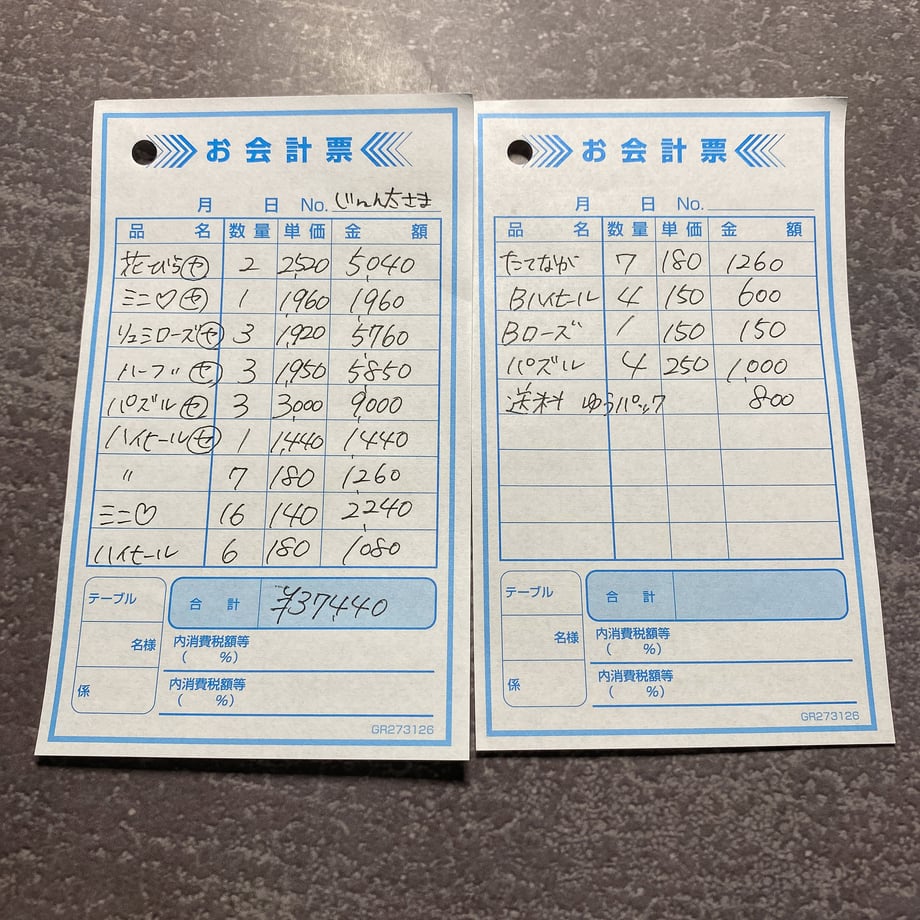 お会計票
月 日 No. じんん太さま
品名 数量 単価 金額
花びら㋳ 2 2,520 5,040
ミニ♡㋝ 1 1,960 1,960
リュミローズ㋳ 3 1,920 5,760
ハーブ㋝ 3 1,950 5,850
パズル㋝ 3 3,000 9,000
ハイヒール㋝ 1 1,440 1,440
〃 7 180 1,260
ミニ♡ 16 140 2,240
ハイヒール 6 180 1,080
テーブル
名様
係
合計 ¥37,440
内消費税額等
( %)
内消費税額等
( %)
GR273126
お会計票
月 日 No.
品名 数量 単価 金額
たてなが 7 180 1260
Bハイヒール 4 150 600
Bローズ 1 150 150
パズル 4 250 1,000
送料 ゆうパック 800
テーブル
名様
係
合計
内消費税額等
( %)
内消費税額等
( %)
GR273126